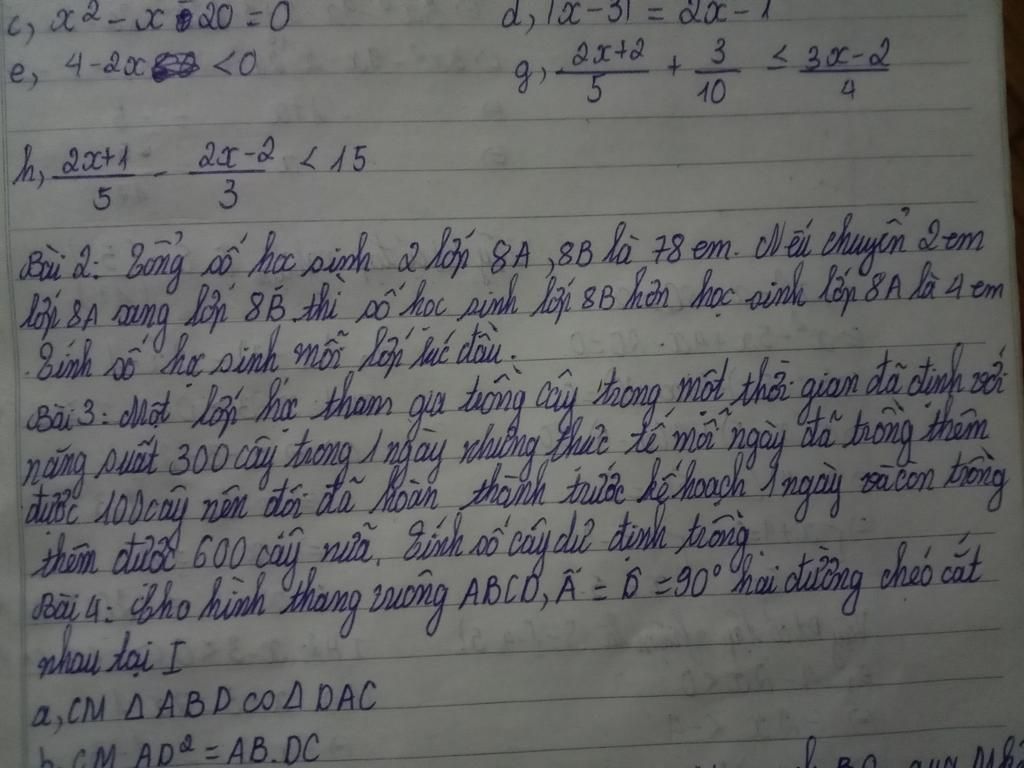 c, x² - x - 20 = 0
d, |x-3| = 2x-1
e, 4-2x < 0
g, (2x+2)/5 + 3/10 ≤ (3x-2)/4
h, (2x+1)/5 - (2x-2)/3 < 15
Bài 2: Tổng số học sinh 2 lớp 8A, 8B là 78 em. Nếu chuyển 2 em
lớp 8A sang lớp 8B thì số học sinh lớp 8B hơn học sinh lớp 8A là 4 em
Tính số học sinh mỗi lớp lúc đầu.
Bài 3: Một lớp học tham gia trồng cây trong một thời gian đã định với
năng suất 300 cây trong 1 ngày nhưng thức tế mỗi ngày đã trồng thêm
được 100 cây nên đội đã hoàn thành trước kế hoạch 1 ngày và còn trồng
thêm được 600 cây nữa. Tính số cây dự định trồng
Bài 4: Cho hình thang vuông ABCD, Â = D̂ = 90° hai đường chéo cắt
nhau tại I
a, CM Δ ABD ∽ Δ DAC
b, CM AD² = AB.DC